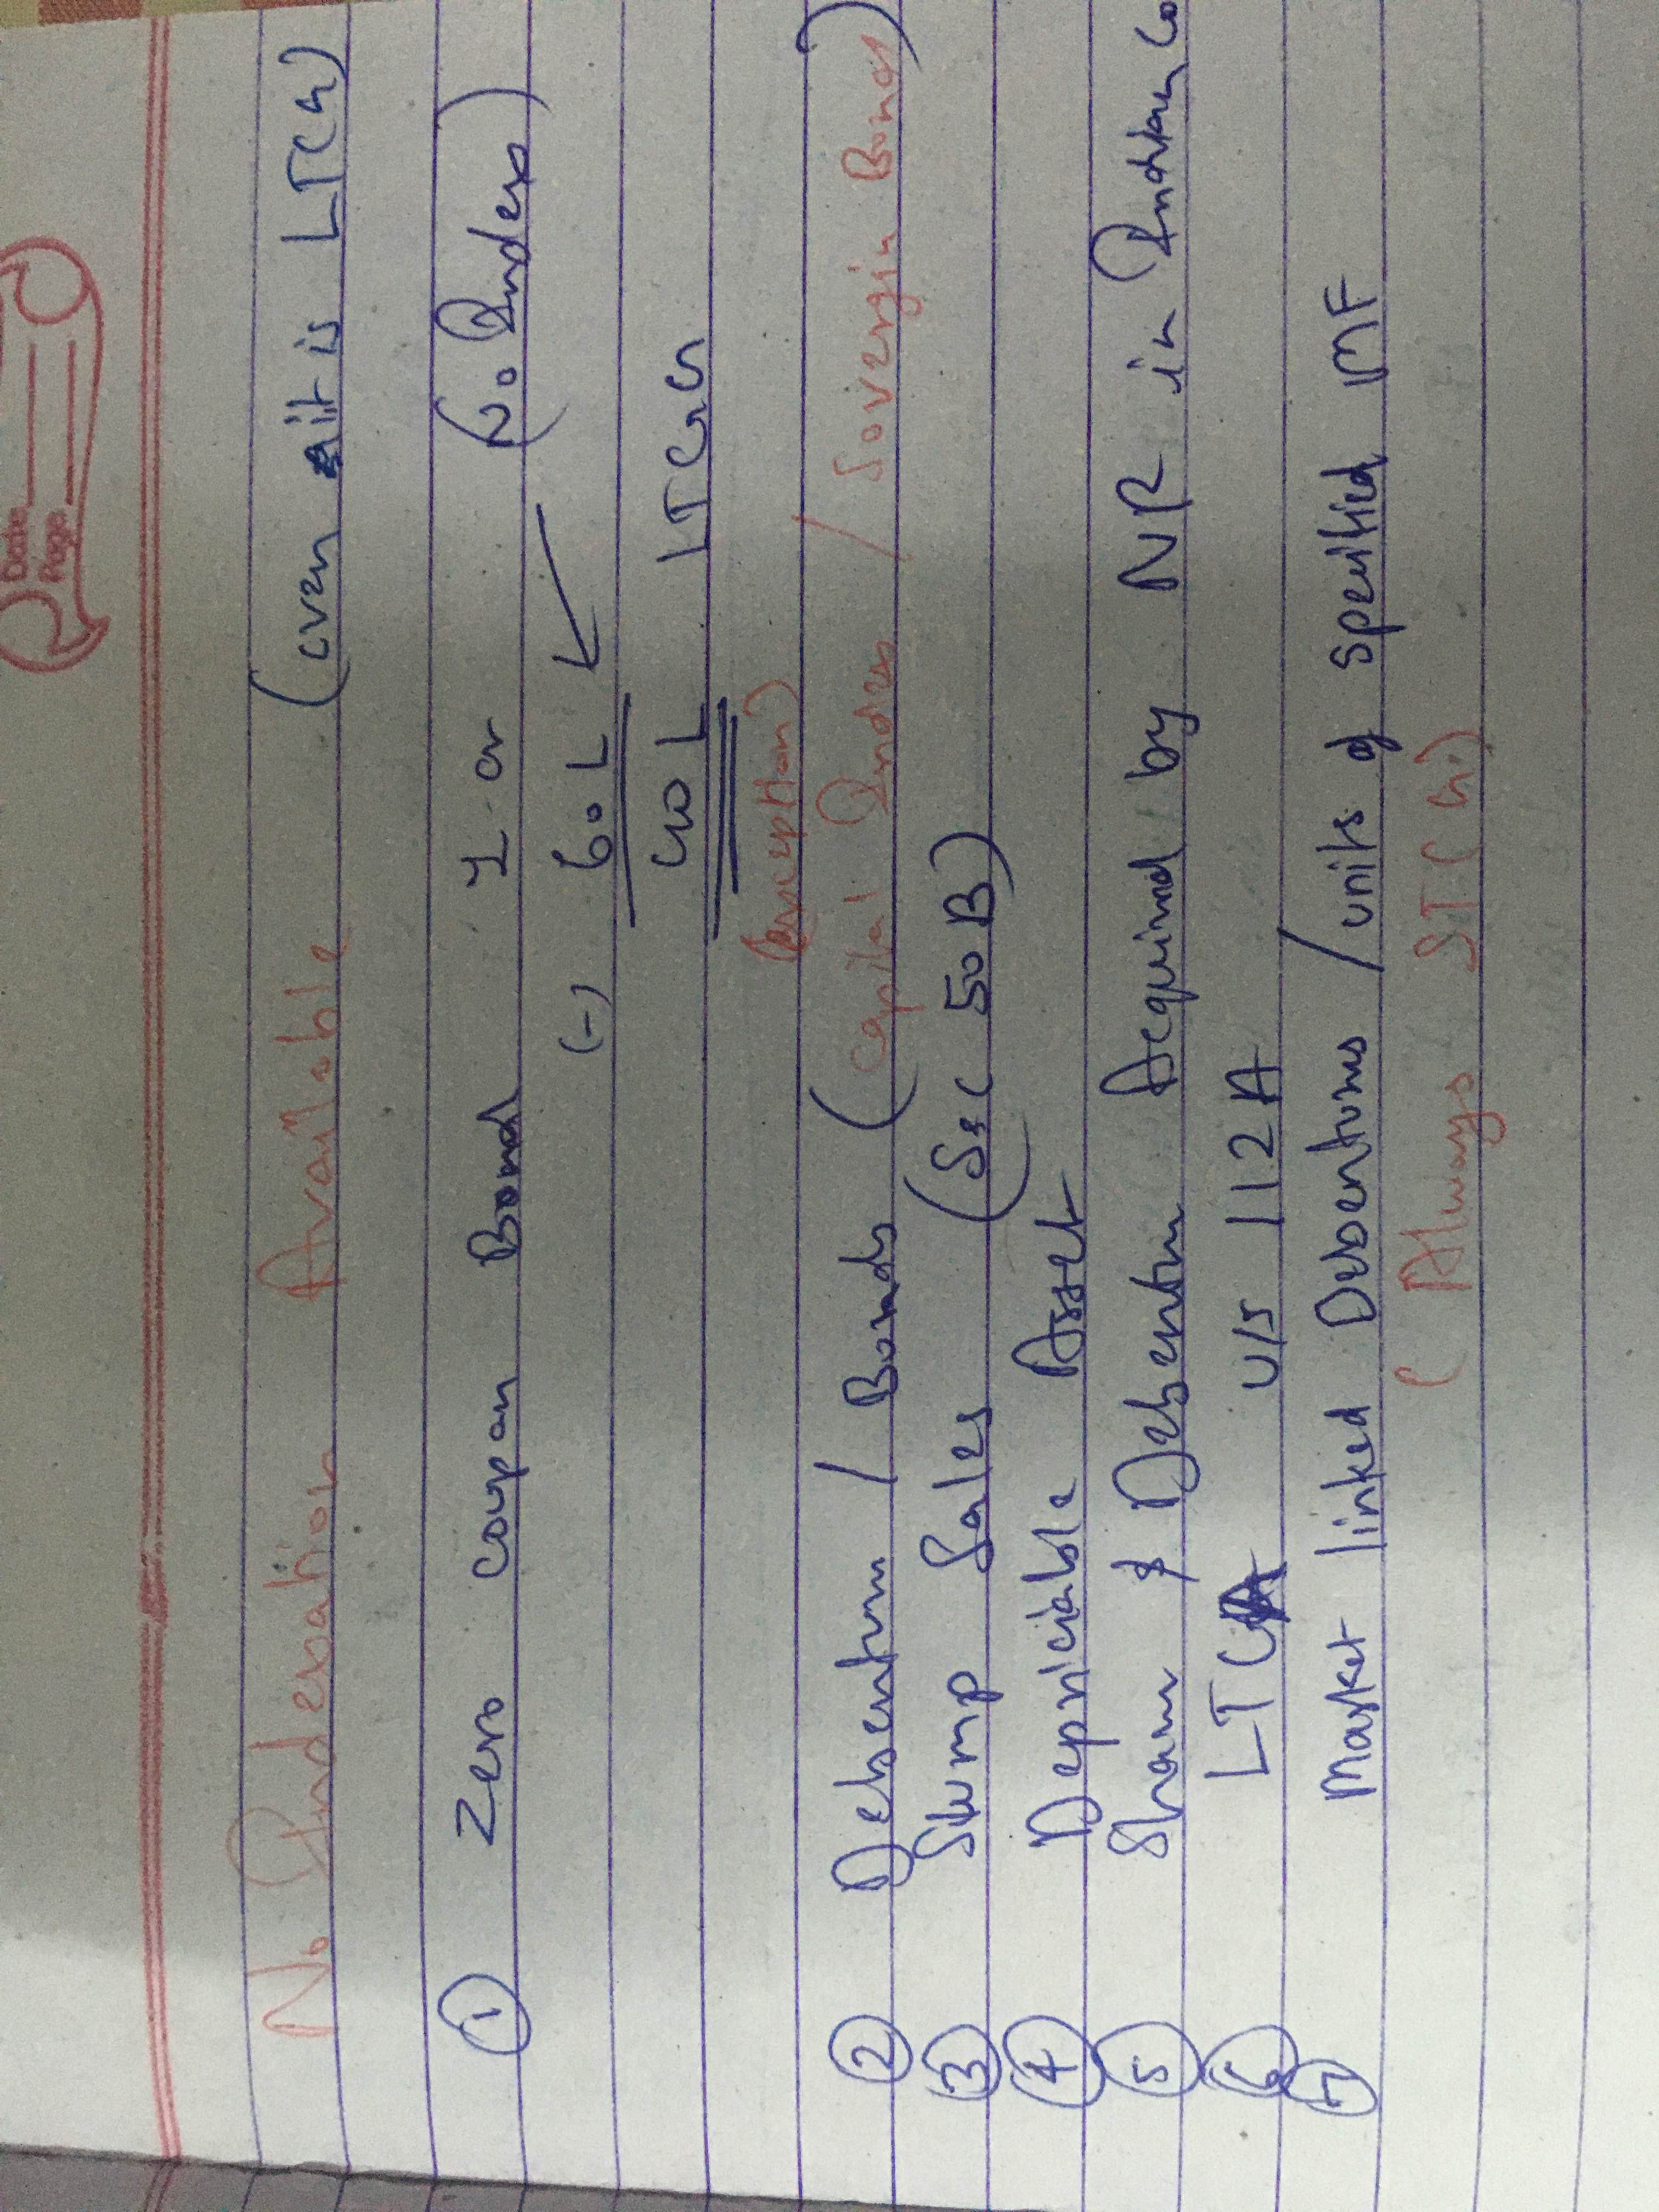 Date
Page
No Indexation Available (even it is LTCG)
① Zero Coupon Bond 1 cr (No Index)
(-) 60 L
40 L LTCG
(Exception)
② Debenture / Bonds (Capital Index / Sovergin Bond)
③ Slump Sales (Sec 50B)
④ Depriciable Asset
⑤ Share & Debenture Acquired by NR in Indian Co
⑥ LTCA u/s 112A
⑦ Market linked Debentures / units of specified MF
(Always STCG)